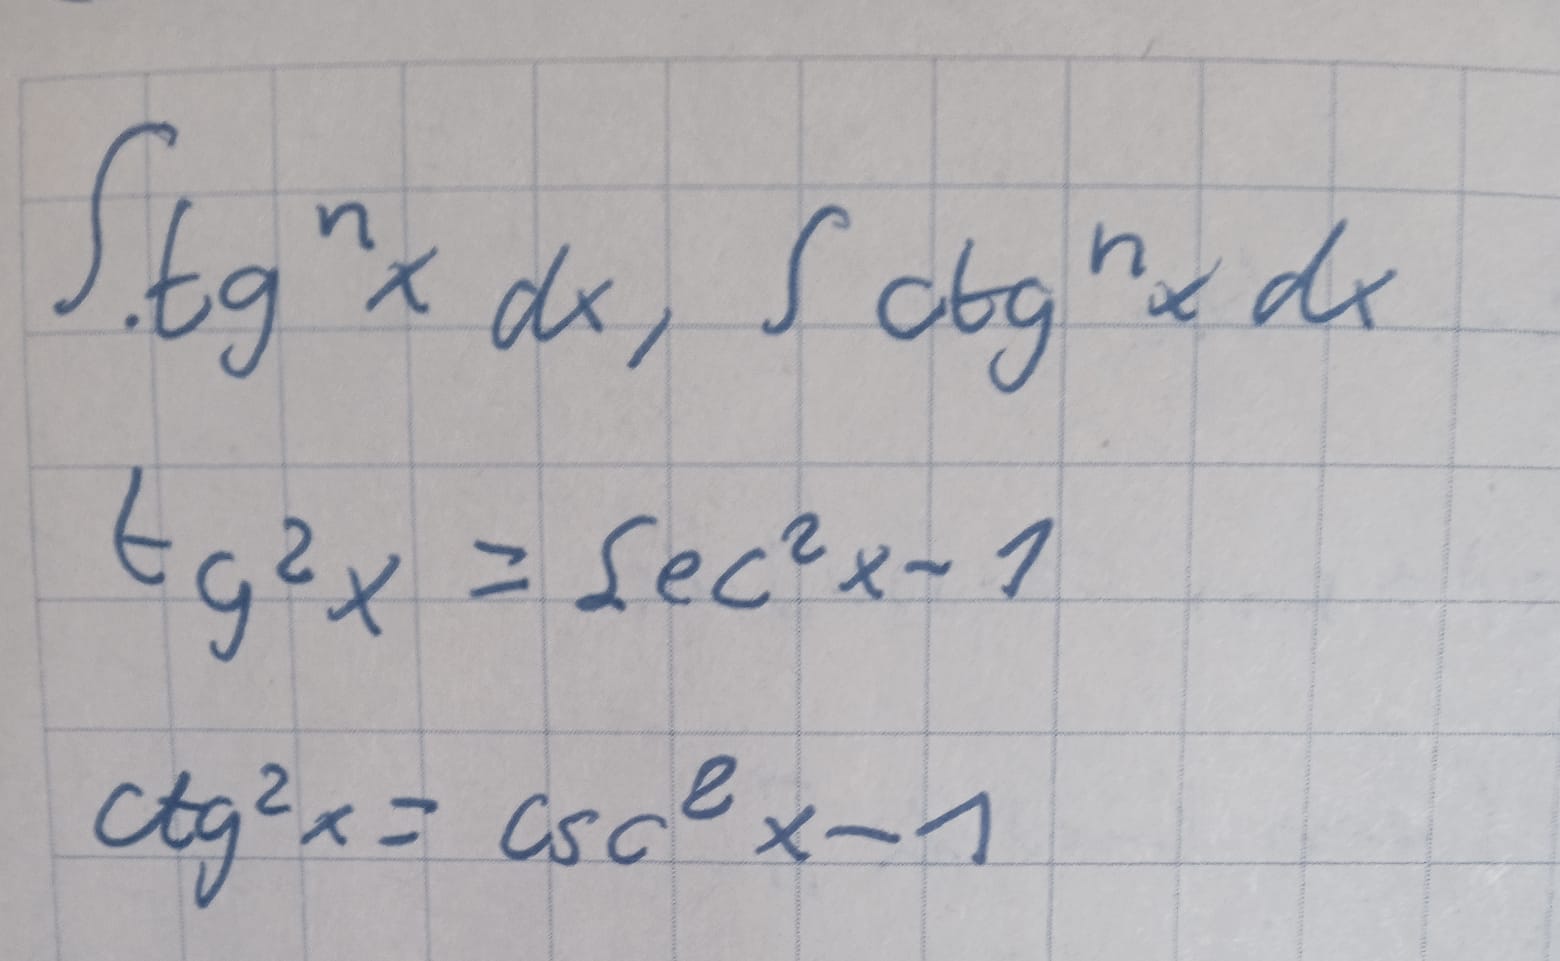 ∫ tgⁿx dx, ∫ ctgⁿx dx
tg²x = sec²x - 1
ctg²x = csc²x - 1